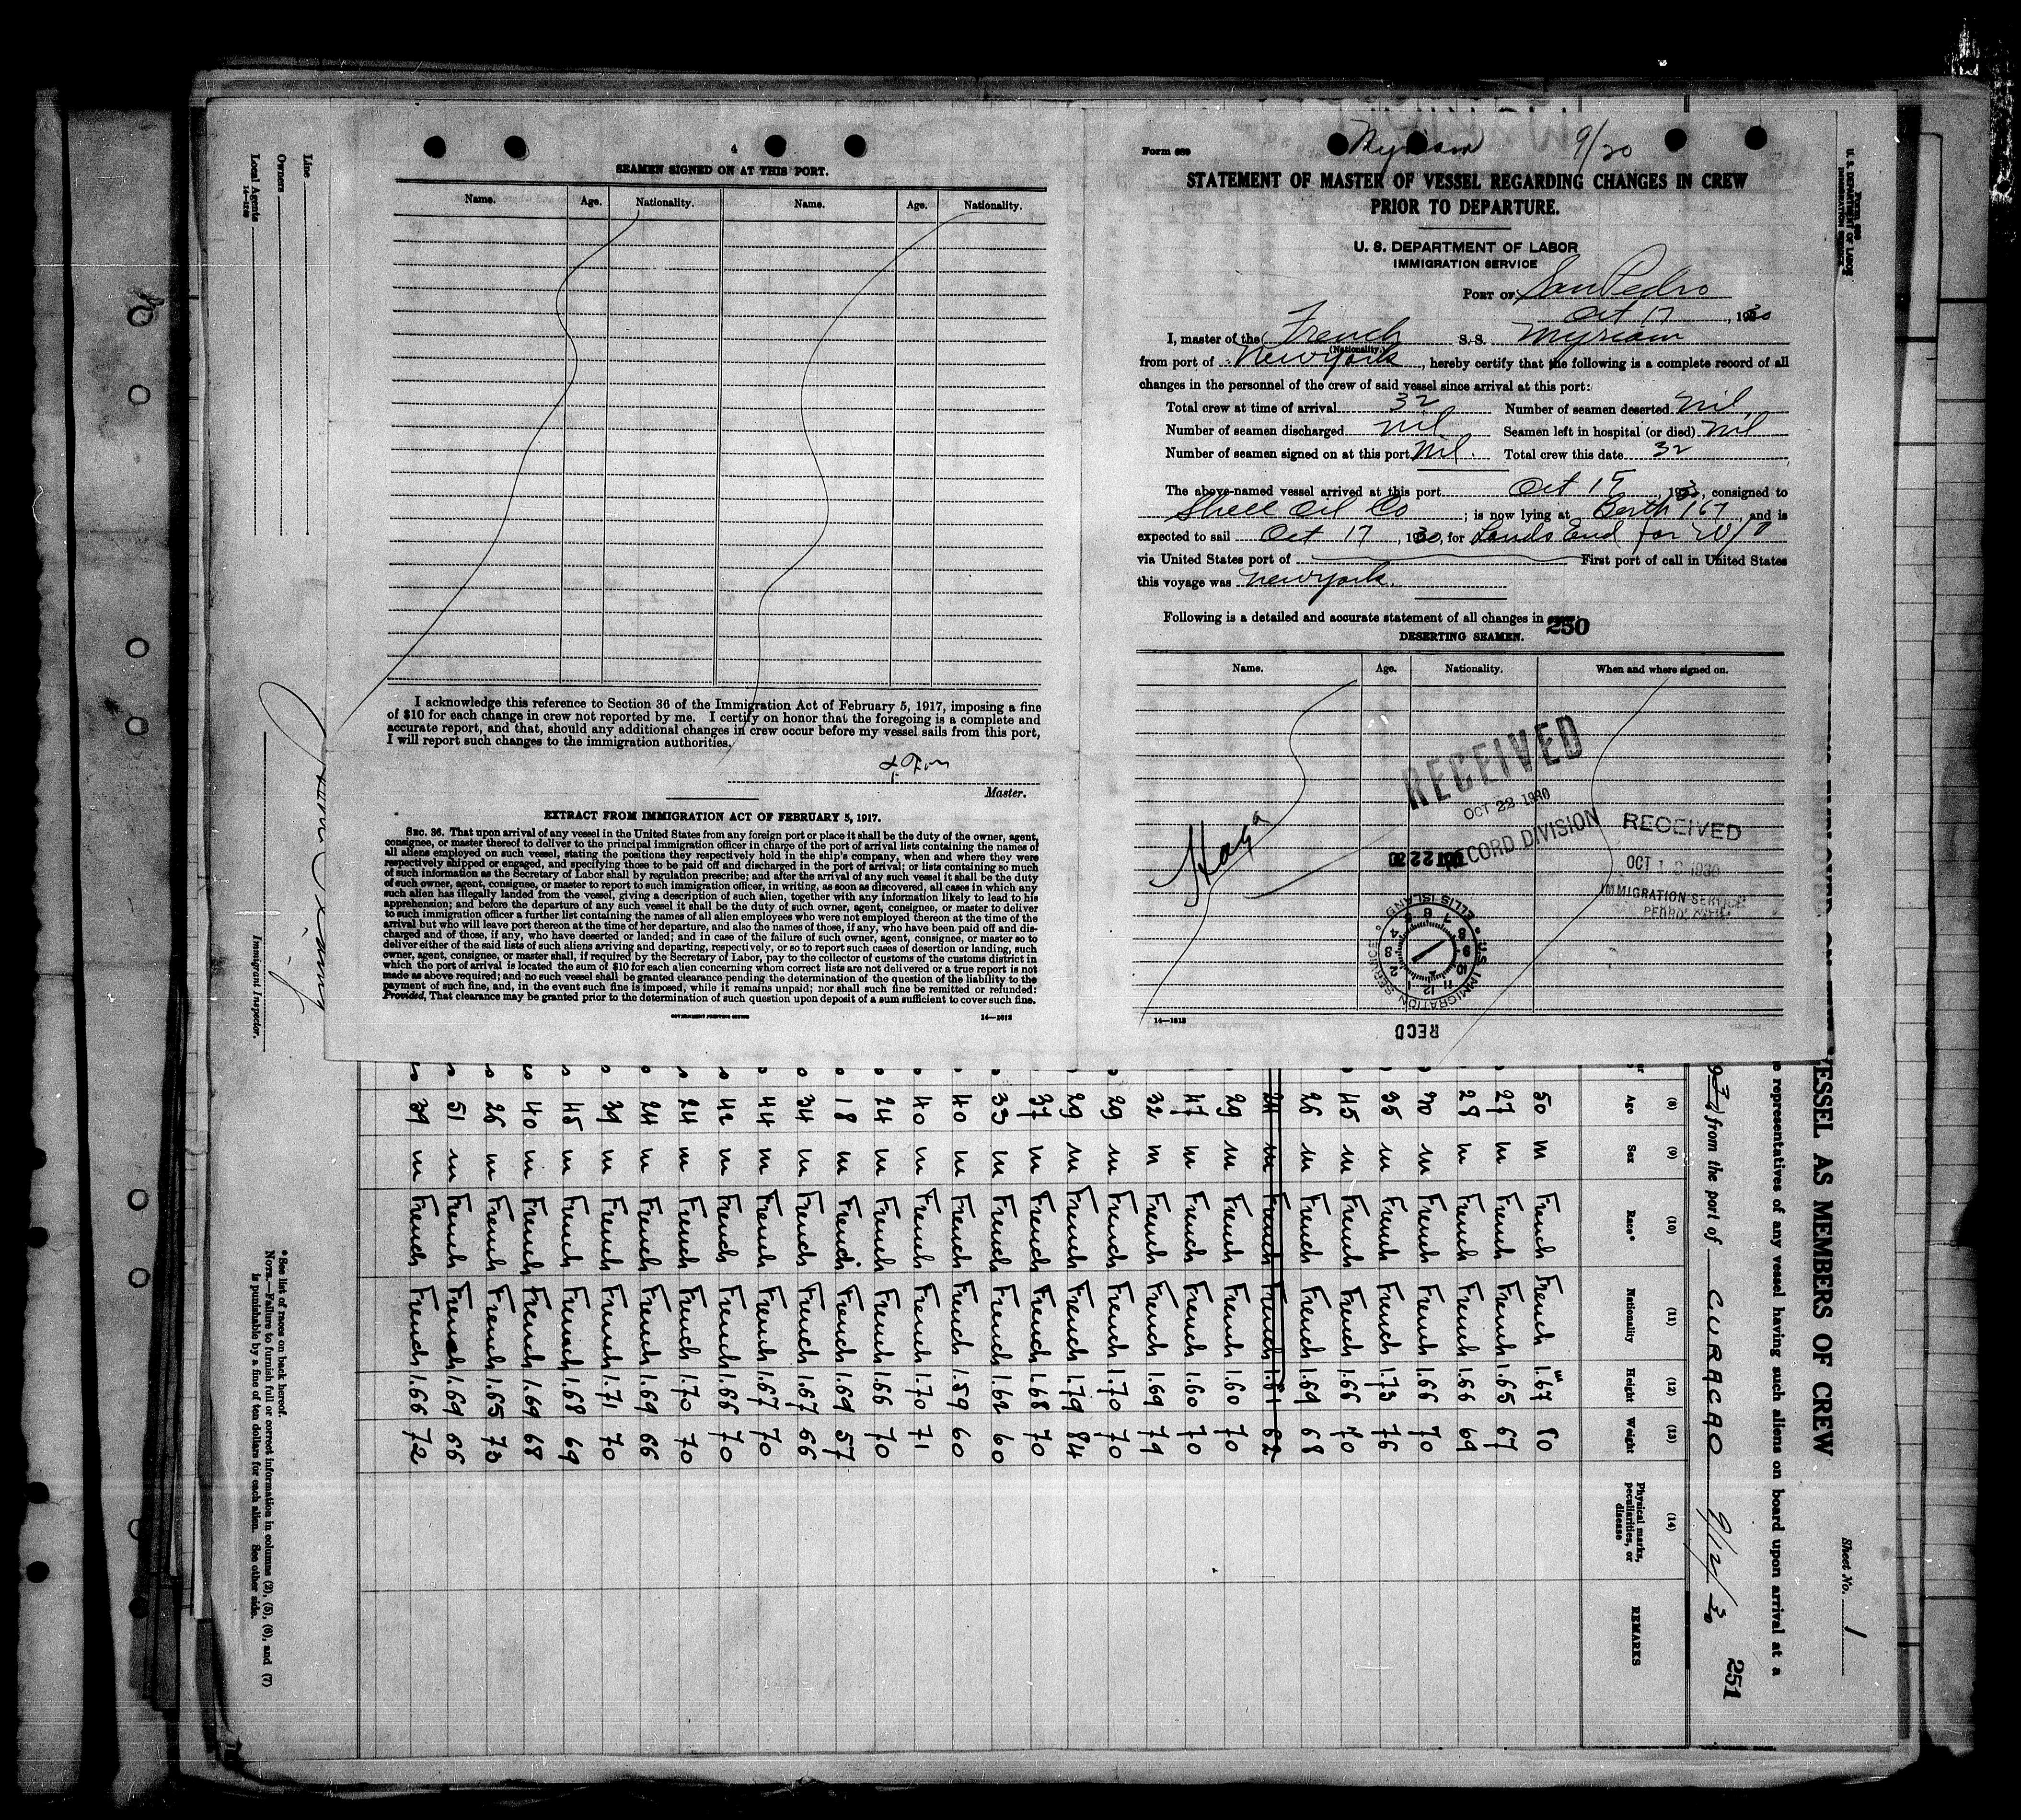 4
SEAMEN SIGNED ON AT THIS PORT.
Name. Age. Nationality. Name. Age. Nationality.
I acknowledge this reference to Section 36 of the Immigration Act of February 5, 1917, imposing a fine
of $10 for each change in crew not reported by me. I certify on honor that the foregoing is a complete and
accurate report, and that, should any additional changes in crew occur before my vessel sails from this port,
I will report such changes to the immigration authorities.
Master.
EXTRACT FROM IMMIGRATION ACT OF FEBRUARY 5, 1917.
SEC. 36. That upon arrival of any vessel in the United States from any foreign port or place it shall be the duty of the owner, agent,
consignee, or master thereof to deliver to the principal immigration officer in charge of the port of arrival lists containing the names of
all aliens employed on such vessel, stating the positions they respectively hold in the ship's company, when and where they were
respectively shipped or engaged, and specifying those to be paid off and discharged in the port of arrival; or lists containing so much
of such information as the Secretary of Labor shall by regulation prescribe; and after the arrival of any such vessel it shall be the duty
of such owner, agent, consignee, or master to report to such immigration officer, in writing, as soon as discovered, all cases in which any
such alien has illegally landed from the vessel, giving a description of such alien, together with any information likely to lead to his
apprehension; and before the departure of any such vessel it shall be the duty of such owner, agent, consignee, or master to deliver
to such immigration officer a further list containing the names of all alien employees who were not employed thereon at the time of the
arrival but who will leave port thereon at the time of her departure, and also the names of those, if any, who have been paid off and dis-
charged and of those, if any, who have deserted or landed; and in case of the failure of such owner, agent, consignee, or master so to
deliver either of the said lists of such aliens arriving and departing, respectively, or so to report such cases of desertion or landing, such
owner, agent, consignee, or master shall, if required by the Secretary of Labor, pay to the collector of customs of the customs district in
which the port of arrival is located the sum of $10 for each alien concerning whom correct lists are not delivered or a true report is not
made as above required; and no such vessel shall be granted clearance pending the determination of the question of the liability to the
payment of such fine, and, in the event such fine is imposed, while it remains unpaid; nor shall such fine be remitted or refunded:
Provided, That clearance may be granted prior to the determination of such question upon deposit of a sum sufficient to cover such fine.
GOVERNMENT PRINTING OFFICE 14—1613
Form 689 Myriam 9/20
STATEMENT OF MASTER OF VESSEL REGARDING CHANGES IN CREW
PRIOR TO DEPARTURE.
U. S. DEPARTMENT OF LABOR
IMMIGRATION SERVICE
PORT OF San Pedro
Oct 17, 1930
I, master of the French S. S. Myriam
(Nationality.)
from port of New york, hereby certify that the following is a complete record of all
changes in the personnel of the crew of said vessel since arrival at this port:
Total crew at time of arrival 32 Number of seamen deserted nil
Number of seamen discharged nil Seamen left in hospital (or died) nil
Number of seamen signed on at this port nil. Total crew this date 32
The above-named vessel arrived at this port Oct 15, 1930, consigned to
Shell Oil Co; is now lying at Berth 167 and is
expected to sail Oct 17, 1930, for Lands End for
via United States port of First port of call in United States
this voyage was new york.
Following is a detailed and accurate statement of all changes in crew:
250
DESERTING SEAMEN.
Name. Age. Nationality. When and where signed on.
RECEIVED
OCT 22 1930
RECORD DIVISION
RECEIVED
OCT 18 1930
IMMIGRATION SERVICE
ELLIS ISLAND
U.S. IMMIGRATION SERVICE
RECD
14—1613
Line
Owners
Local Agents
14-1240
Immigrant Inspector.
Form 680
U. S. DEPARTMENT OF LABOR
IMMIGRATION SERVICE
Sheet No. 1
VESSEL AS MEMBERS OF CREW
representatives of any vessel having such aliens on board upon arrival at a
from the port of CURACAO 9/12/30
251
(8) (9) (10) (11) (12) (13) (14)
Age Sex Race* Nationality Height Weight Physical marks, peculiarities, or disease REMARKS
50 m French French 1.67 80
27 m French French 1.65 67
28 m French French 1.66 69
30 m French French 1.66 70
35 m French French 1.73 76
45 m French French 1.66 70
26 m French French 1.69 68
24 m French French 1.61 62
29 m French French 1.60 70
47 m French French 1.60 70
32 m French French 1.69 79
29 m French French 1.70 70
29 m French French 1.79 84
37 m French French 1.68 70
33 m French French 1.62 60
40 m French French 1.59 60
40 m French French 1.70 71
24 m French French 1.66 70
18 m French French 1.69 57
34 m French French 1.67 66
44 m French French 1.67 70
42 m French French 1.66 70
24 m French French 1.70 70
24 m French French 1.69 66
39 m French French 1.71 70
45 m French French 1.68 69
40 m French French 1.69 68
26 m French French 1.65 73
51 m French French 1.69 66
39 m French French 1.66 72
*See list of races on back hereof.
NOTE.—Failure to furnish full or correct information in columns (2), (5), (6), and (7)
is punishable by a fine of ten dollars for each alien. See other side.